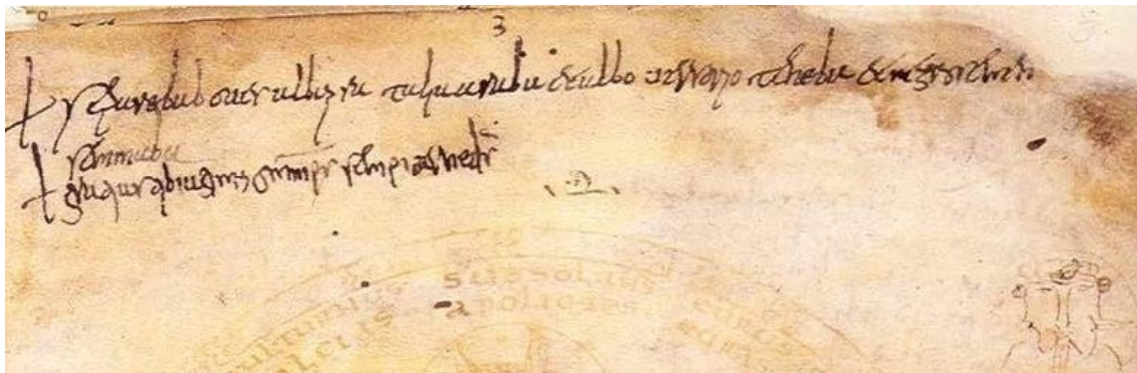 3
+ se pareba boues alba pratalia araba & albo uersorio teneba & negro semen
seminaba
+ gratias tibi agimus omnip̅s sempiterne d̅s
subsolanus
apoliotes